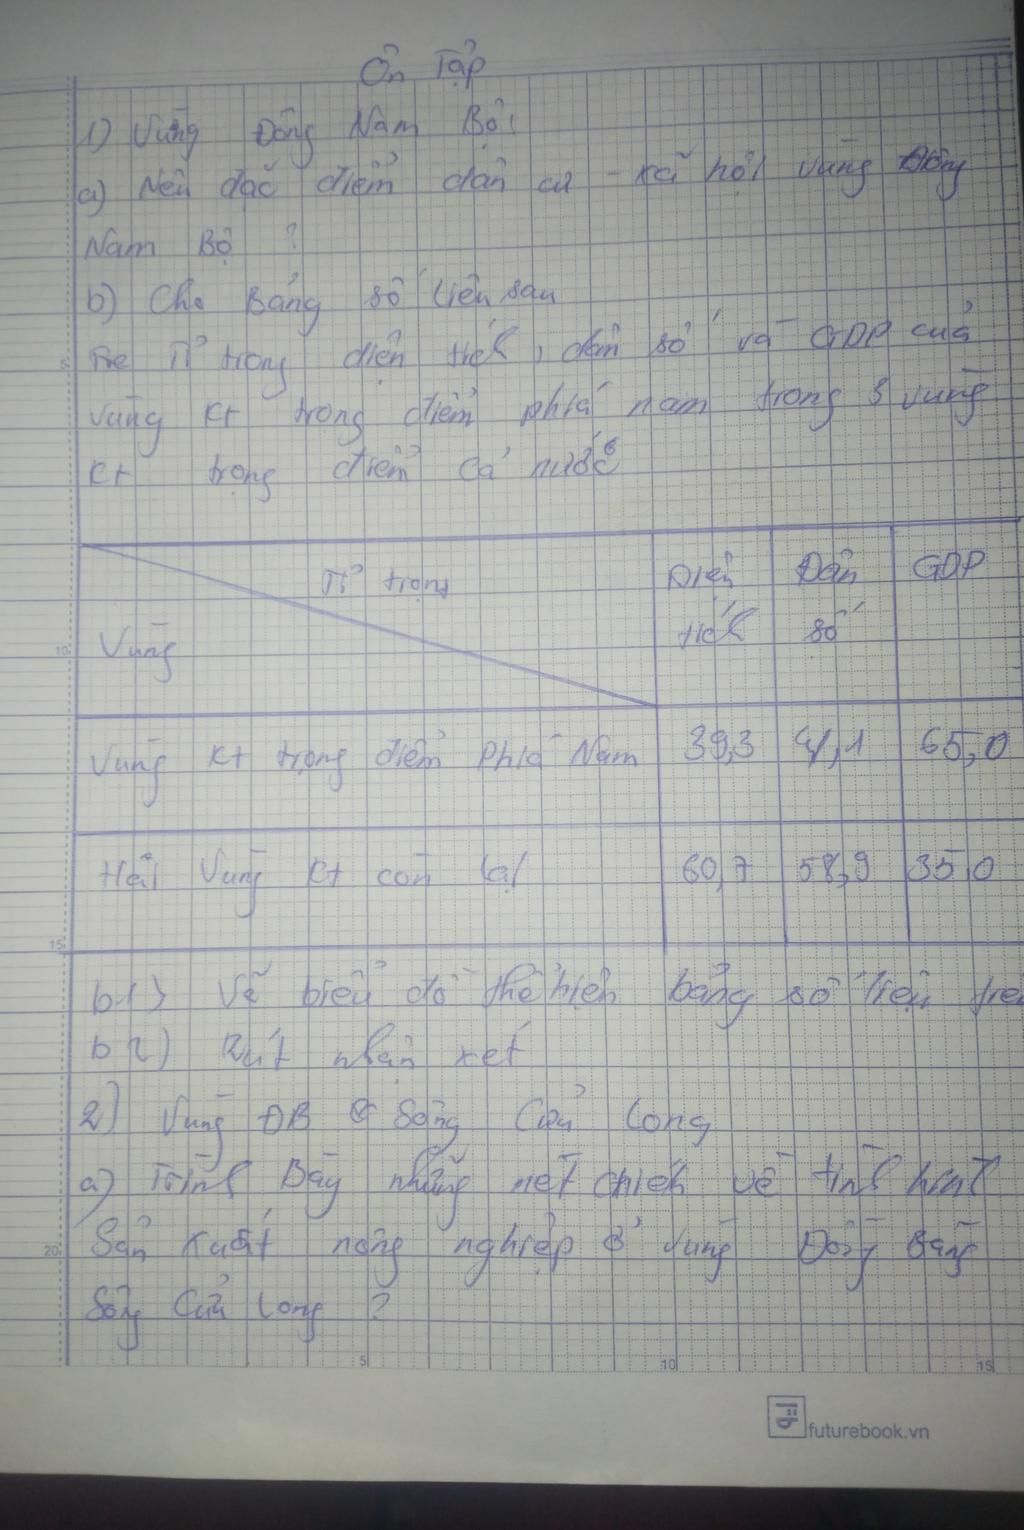 Ôn Tập
1) Vùng Đông Nam Bộ:
a) Nêu đặc điểm dân cư - xã hội vùng Đông
Nam Bộ ?
b) Cho Bảng số liệu sau
Tỉ trọng diện tích, dân số và GDP của
vùng Kt trọng điểm phía nam trong 3 vùng
Kt trọng điểm cả nước
Tỉ trọng
Vùng
Diện tích
Dân số
GDP
Vùng Kt trọng điểm phía Nam 39,3 41,1 65,0
Hai Vùng Kt còn lại 60,7 58,9 35,0
b1) Vẽ biểu đồ thể hiện bảng số liệu trên
b2) Rút nhận xét
2) Vùng ĐB Sông Cửu Long
a) Trình Bày những nét chính về tình hình
Sản xuất nông nghiệp ở vùng Đồng Bằng
Sông Cửu Long ?
5 10 15
futurebook.vn